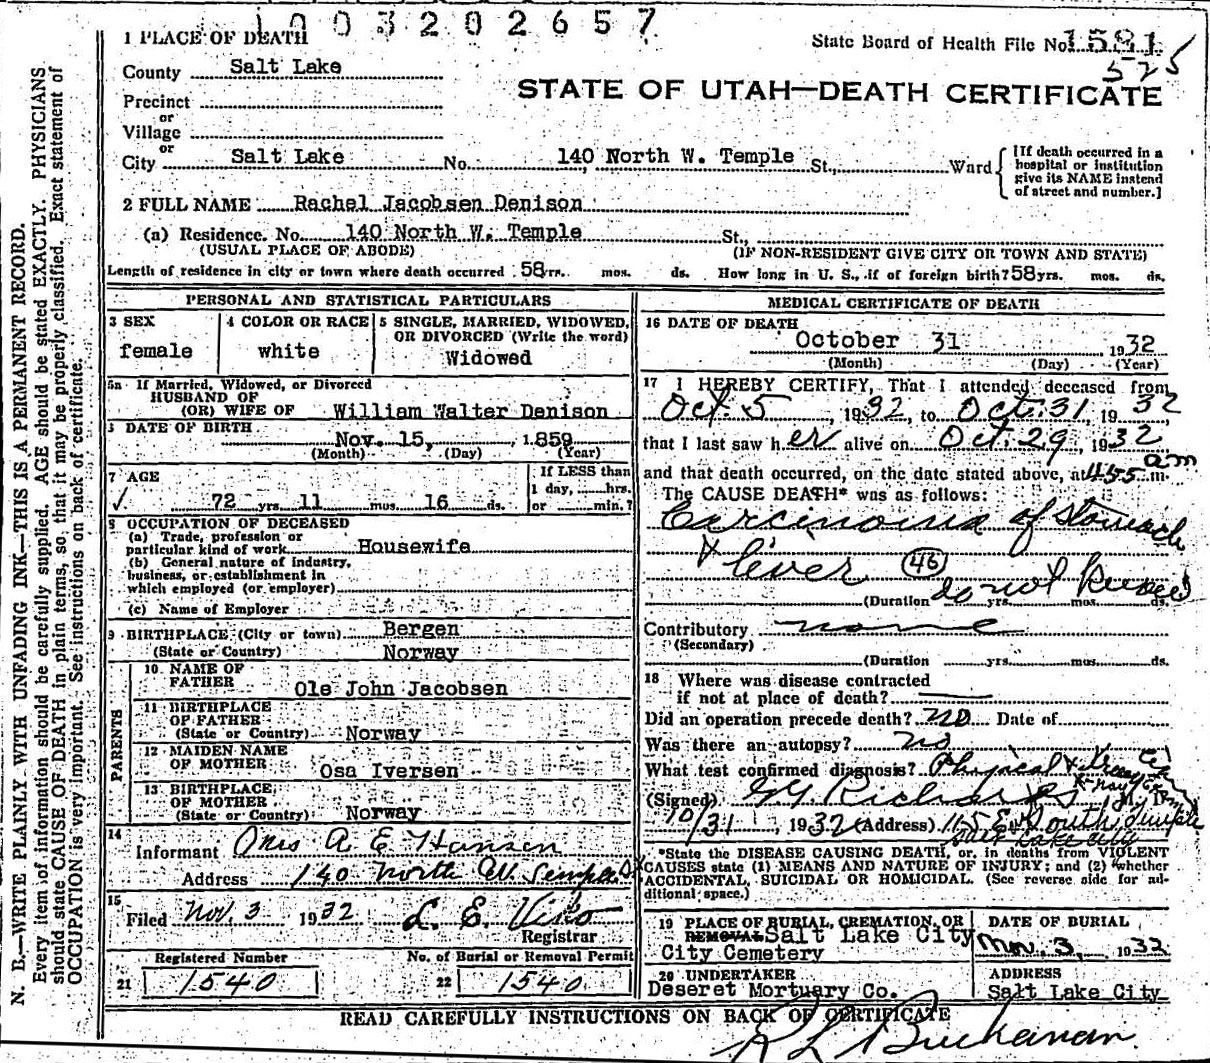 1003202657
1 PLACE OF DEATH
State Board of Health File No. 1581
525
County Salt Lake
STATE OF UTAH—DEATH CERTIFICATE
Precinct
or
Village
or
City Salt Lake No. 140 North W. Temple St., Ward
[If death occurred in a
hospital or institution
give its NAME instead
of street and number.]
2 FULL NAME Rachel Jacobsen Denison
(a) Residence. No. 140 North W. Temple St.,
(USUAL PLACE OF ABODE) (IF NON-RESIDENT GIVE CITY OR TOWN AND STATE)
Length of residence in city or town where death occurred 58 yrs. mos. ds. How long in U. S., if of foreign birth? 58 yrs. mos. ds.
PERSONAL AND STATISTICAL PARTICULARS
3 SEX
female
4 COLOR OR RACE
white
5 SINGLE, MARRIED, WIDOWED,
OR DIVORCED (Write the word)
Widowed
5a If Married, Widowed, or Divorced
HUSBAND OF
(OR) WIFE OF William Walter Denison
DATE OF BIRTH
Nov. 15, 1859
(Month) (Day) (Year)
7 AGE
72 yrs. 11 mos. 16 ds.
If LESS than
1 day, hrs.
or min.?
8 OCCUPATION OF DECEASED
(a) Trade, profession or
particular kind of work Housewife
(b) General nature of industry,
business, or establishment in
which employed (or employer)
(c) Name of Employer
9 BIRTHPLACE (City or town) Bergen
(State or Country) Norway
PARENTS
10. NAME OF
FATHER Ole John Jacobsen
11 BIRTHPLACE
OF FATHER
(State or Country) Norway
12 MAIDEN NAME
OF MOTHER Osa Iversen
13 BIRTHPLACE
OF MOTHER
(State or Country) Norway
14
Informant Mrs A. E. Hansen
Address 140 North W. Temple St
15
Filed Nov. 3 1932 L. E. Viko
Registrar
Registered Number
21 1540
No. of Burial or Removal Permit
22 1540
MEDICAL CERTIFICATE OF DEATH
16 DATE OF DEATH
October 31 1932
(Month) (Day) (Year)
17 I HEREBY CERTIFY, That I attended deceased from
Oct. 5, 1932, to Oct. 31 1932
that I last saw her alive on Oct. 29, 1932
and that death occurred, on the date stated above, at 4:55 am m.
The CAUSE DEATH* was as follows:
Carcinoma of stomach
& liver (46)
(Duration do not know yrs. mos. ds.
Contributory none
(Secondary)
(Duration yrs. mos. ds.
18 Where was disease contracted
if not at place of death?
Did an operation precede death? no Date of
Was there an autopsy? no
What test confirmed diagnosis? Physical & x-ray
(Signed) G. G. Richards M. D.
10/31, 1932 (Address) South Temple
Salt Lake City
*State the DISEASE CAUSING DEATH, or, in deaths from VIOLENT
CAUSES state (1) MEANS AND NATURE OF INJURY; and (2) whether
ACCIDENTAL, SUICIDAL OR HOMICIDAL. (See reverse side for ad-
ditional space.)
19 PLACE OF BURIAL, CREMATION, OR
REMOVAL Salt Lake City
City Cemetery
DATE OF BURIAL
Nov. 3, 1932
20 UNDERTAKER
Deseret Mortuary Co.
ADDRESS
Salt Lake City
READ CAREFULLY INSTRUCTIONS ON BACK OF CERTIFICATE
R L Buchanan.
N. B.—WRITE PLAINLY WITH UNFADING INK—THIS IS A PERMANENT RECORD.
Every item of information should be carefully supplied. AGE should be stated EXACTLY. PHYSICIANS
should state CAUSE OF DEATH in plain terms, so that it may be properly classified. Exact statement of
OCCUPATION is very important. See instructions on back of certificate.